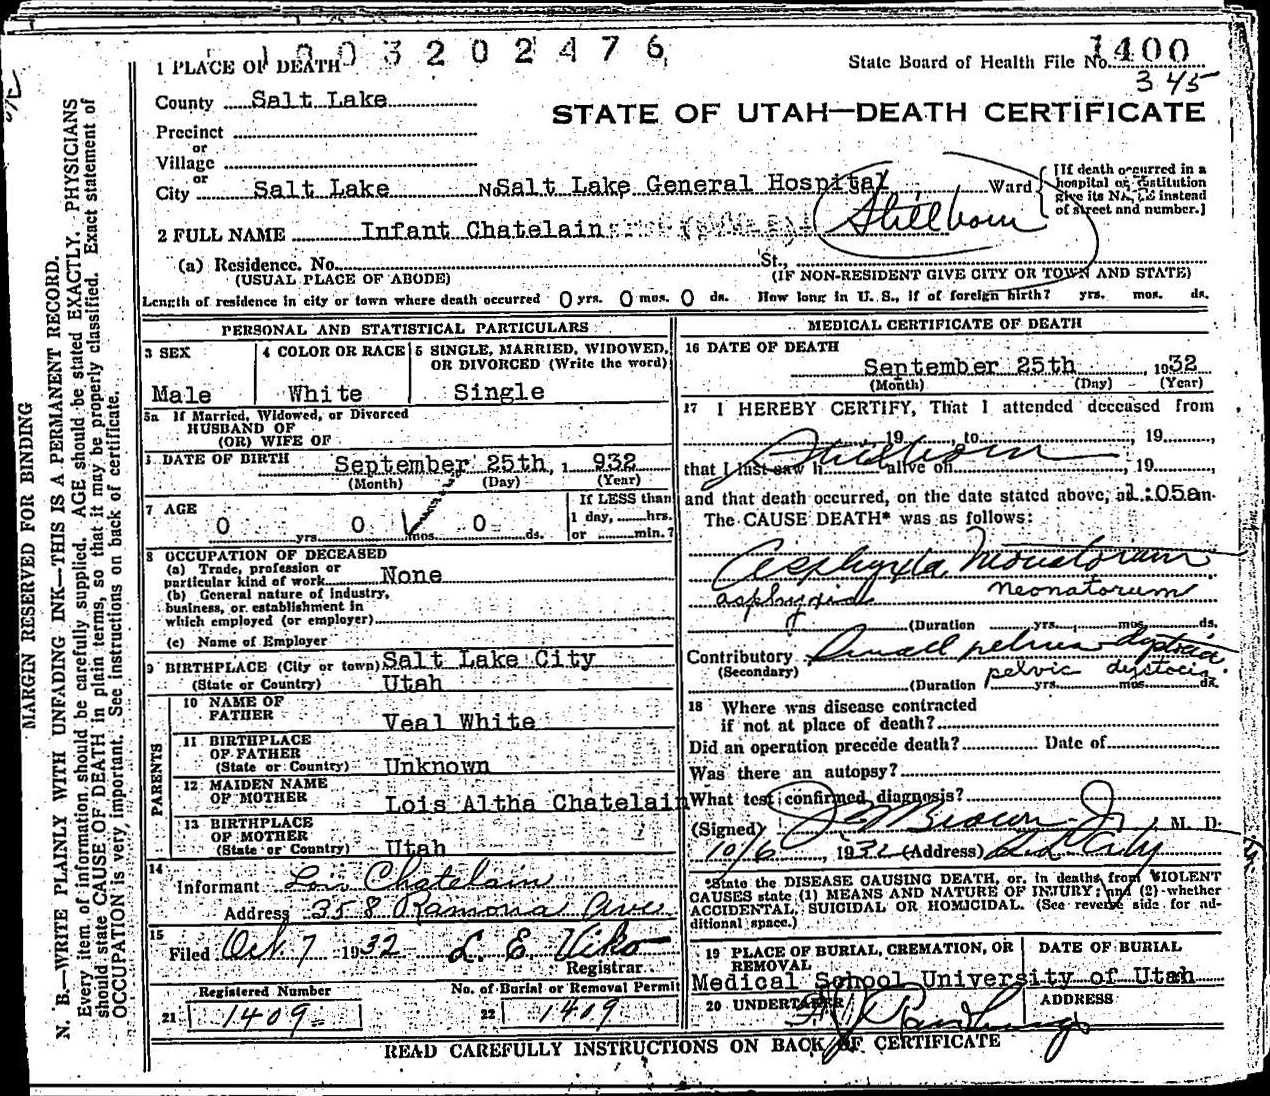 1 PLACE OF DEATH
1003202476
State Board of Health File No. 1400
345
County Salt Lake
STATE OF UTAH—DEATH CERTIFICATE
Precinct
or
Village
or
City Salt Lake No. Salt Lake General Hospital Ward
[If death occurred in a hospital or institution give its NAME instead of street and number.]
Stillborn
2 FULL NAME Infant Chatelain
(a) Residence. No. St.,
(USUAL PLACE OF ABODE) (IF NON-RESIDENT GIVE CITY OR TOWN AND STATE)
Length of residence in city or town where death occurred 0 yrs. 0 mos. 0 ds. How long in U. S., if of foreign birth? yrs. mos. ds.
PERSONAL AND STATISTICAL PARTICULARS
3 SEX
Male
4 COLOR OR RACE
White
5 SINGLE, MARRIED, WIDOWED, OR DIVORCED (Write the word)
Single
5a If Married, Widowed, or Divorced
HUSBAND OF
(OR) WIFE OF
DATE OF BIRTH September 25th, 1932
(Month) (Day) (Year)
7 AGE
0 yrs. 0 mos. 0 ds.
If LESS than
1 day, hrs.
or min.?
8 OCCUPATION OF DECEASED
(a) Trade, profession or
particular kind of work None
(b) General nature of industry,
business, or establishment in
which employed (or employer)
(c) Name of Employer
9 BIRTHPLACE (City or town) Salt Lake City
(State or Country) Utah
PARENTS
10 NAME OF
FATHER Veal White
11 BIRTHPLACE
OF FATHER
(State or Country) Unknown
12 MAIDEN NAME
OF MOTHER Lois Altha Chatelain
13 BIRTHPLACE
OF MOTHER
(State or Country) Utah
14
Informant Lois Chatelain
Address 358 Ramona Ave
15
Filed Oct. 7 1932 L. E. Viko
Registrar
Registered Number
21 1409
No. of Burial or Removal Permit
22 1409
MEDICAL CERTIFICATE OF DEATH
16 DATE OF DEATH
September 25th 1932
(Month) (Day) (Year)
17 I HEREBY CERTIFY, That I attended deceased from
, 19 , to , 19 ,
Stillborn
that I last saw h alive on , 19 ,
and that death occurred, on the date stated above, at 1:05am.
The CAUSE DEATH* was as follows:
Asphyxia Neonatorum
asphyxia neonatorum
(Duration yrs. mos. ds.
Contributory Small pelvis dystocia
(Secondary) pelvic dystocia
(Duration yrs. mos. ds.
18 Where was disease contracted
if not at place of death?
Did an operation precede death? Date of
Was there an autopsy?
What test confirmed diagnosis?
(Signed) Brown Jr. M. D.
10/6, 1932 (Address) S L City
*State the DISEASE CAUSING DEATH, or, in deaths from VIOLENT
CAUSES state (1) MEANS AND NATURE OF INJURY; and (2) whether
ACCIDENTAL, SUICIDAL OR HOMICIDAL. (See reverse side for ad-
ditional space.)
19 PLACE OF BURIAL, CREMATION, OR REMOVAL
DATE OF BURIAL
Medical School University of Utah
20 UNDERTAKER
ADDRESS
READ CAREFULLY INSTRUCTIONS ON BACK OF CERTIFICATE
MARGIN RESERVED FOR BINDING
N. B.—WRITE PLAINLY WITH UNFADING INK—THIS IS A PERMANENT RECORD.
Every item of information should be carefully supplied. AGE should be stated EXACTLY. PHYSICIANS
should state CAUSE OF DEATH in plain terms, so that it may be properly classified. Exact statement of
OCCUPATION is very important. See instructions on back of certificate.